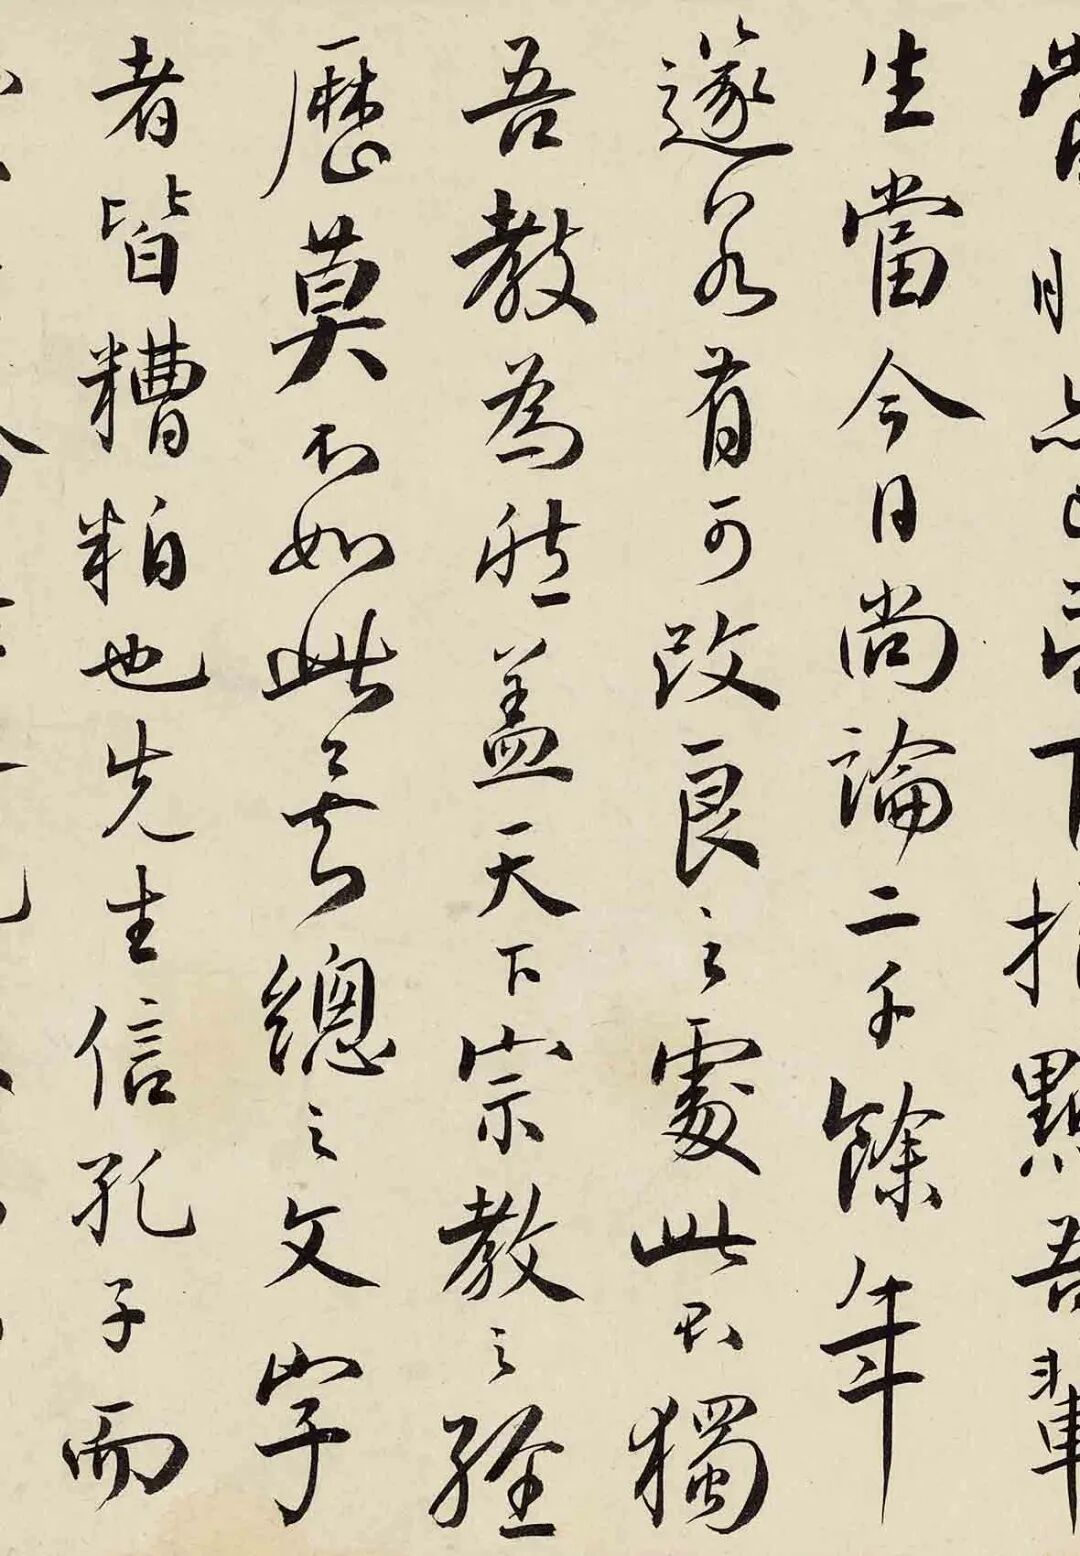 下指點吾輩
生當今日尚論二千餘年
遂若有可改良之處此不獨
吾教為然蓋天下宗教之經
歷莫不如此矣總之文字
者皆糟粕也先生信孔子而